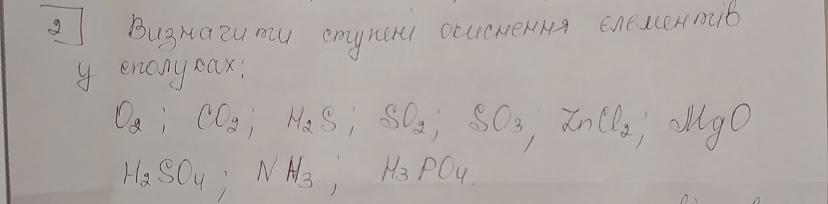 2 Визначити ступені окиснення елементів
у сполуках:
O2; CO2; H2S; SO2; SO3; ZnCl2; MgO
H2SO4; NH3; H3PO4.